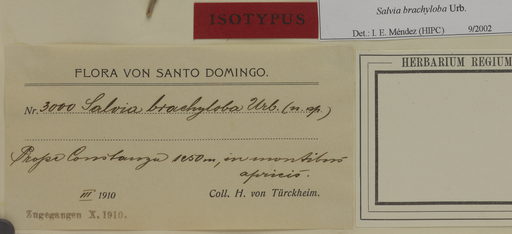 ISOTYPUS
Salvia brachyloba Urb.
Det.: I. E. Méndez (HIPC) 9/2002
HERBARIUM REGIUM
FLORA VON SANTO DOMINGO.
Nr. 3000 Salvia brachyloba Urb. (n. sp.)
Prope Constanza 1250 m, in montibus
apricis.
III 1910 Coll. H. von Türckheim.
Zugegangen X. 1910.